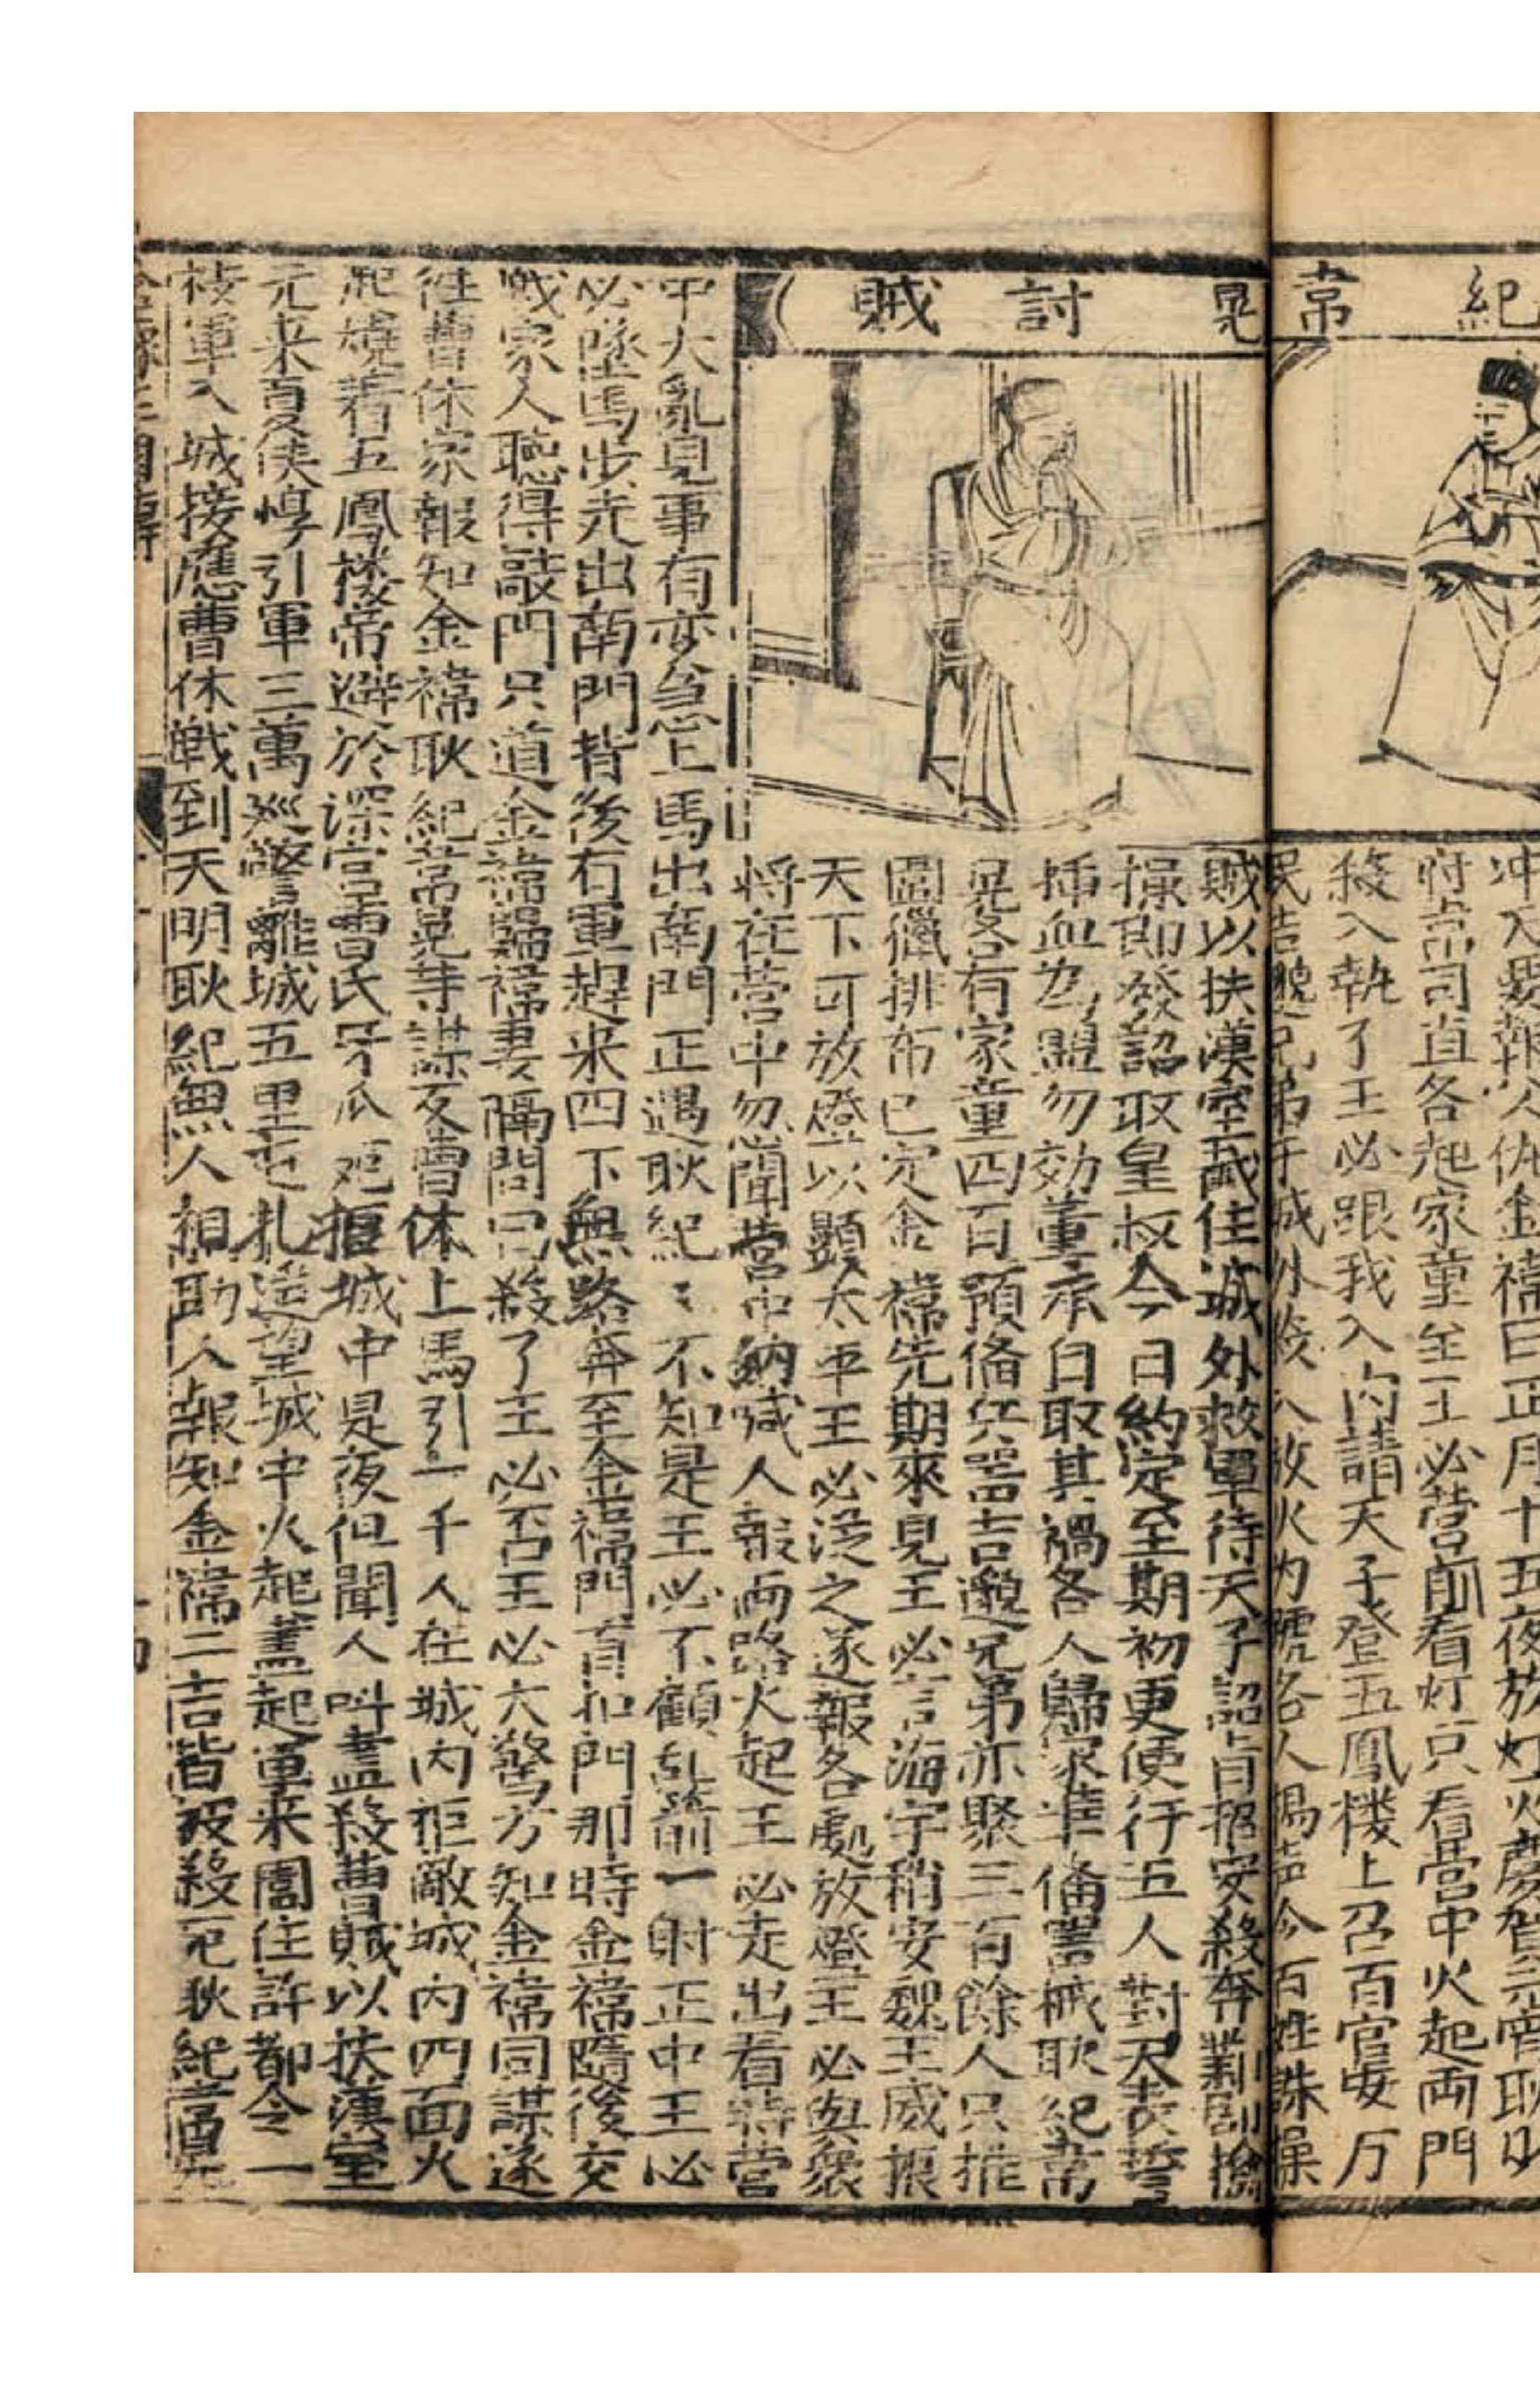 紀 韋
晃 討 賊
冲入要報父仇金禕曰正月十五夜放灯火慶賀元宵耿少
府韋司直各起家童至王必营前看灯只看营中火起両門
殺入執了王必跟我入内請天子登五鳳楼上召百官安万
民吉邈兄弟于城外殺入放火为號各人揚声令百姓誅操
賊以扶漢室截住城外救軍待天子詔旨招安殺奔鄴郡擒
操即發詔取皇叔今日約定至期初更便行五人對天表誓
挿血为盟勿効董承自取其禍各人歸家準備噐械耿紀韋
晃各有家童四百預備兵噐吉邈兄弟亦聚三百餘人只推
圍獵排布已定金禕先期來見王必言海宇稍安魏王威振
天下可放燈以顯太平王必從之遂報各處放燈王必與衆
将在营中忽聞营中吶喊人報両路火起王必走出看時营
中大亂見事有変急上馬出南門正遇耿紀〻不知是王必不顧乱箭一射正中王必
必墜馬步走出南門背後有軍趕来四下無路奔至金禕門首扣門那時金禕隨後交
戦家人聽得敲門只道金禕歸禕妻隔門問曰殺了王必否王必大驚方知金禕同謀遂
徃曹休家報知金禕耿紀韋晃等謀反曹休上馬引一千人在城内拒敵城内四面火
起燒着五鳳楼帝避於深宫曹氏牙瓜死拒城中是夜但聞人叫盡殺曹賊以扶漢室
元来夏侯惇引軍三萬巡警離城五里屯札遙望城中火起盡起軍来圍住許都令一
枝軍入城接應曹休戦到天明耿紀無人相助人報知金禕二吉皆被殺死耿紀韋晃